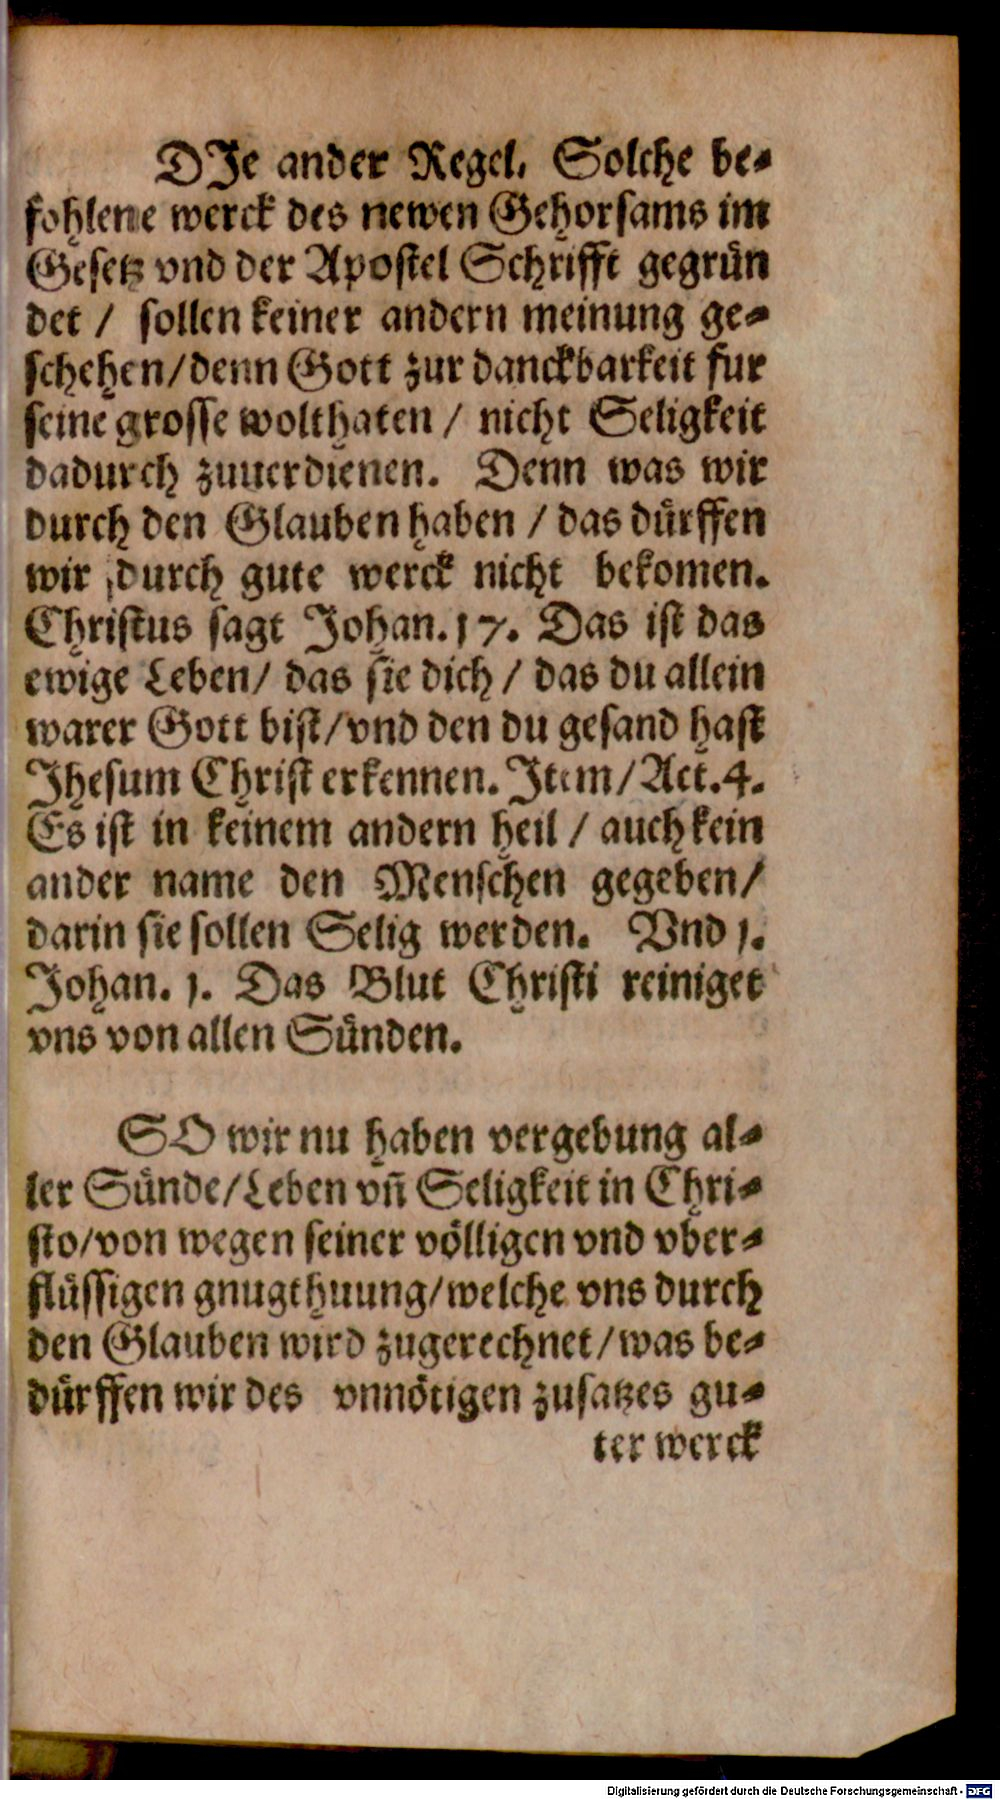 DIe ander Regel. Solche be-
fohlene werck des newen Gehorsams im
Gesetz vnd der Apostel Schrifft gegrün
det / sollen keiner andern meinung ge-
schehen/denn Gott zur danckbarkeit fur
seine grosse wolthaten / nicht Seligkeit
dadurch zuuerdienen. Denn was wir
durch den Glauben haben / das dürffen
wir durch gute werck nicht bekomen.
Christus sagt Johan. 17. Das ist das
ewige Leben/ das sie dich / das du allein
warer Gott bist/vnd den du gesand hast
Jhesum Christ erkennen. Item/Act.4.
Es ist in keinem andern heil / auch kein
ander name den Menschen gegeben/
darin sie sollen Selig werden. Vnd 1.
Johan. 1. Das Blut Christi reiniget
vns von allen Sünden.
SO wir nu haben vergebung al-
ler Sünde/Leben vñ Seligkeit in Chri-
sto/von wegen seiner völligen vnd vber-
flüssigen gnugthuung/welche vns durch
den Glauben wird zugerechnet/was be-
dürffen wir des vnnötigen zusatzes gu-
ter werck
Digitalisierung gefördert durch die Deutsche Forschungsgemeinschaft - DFG